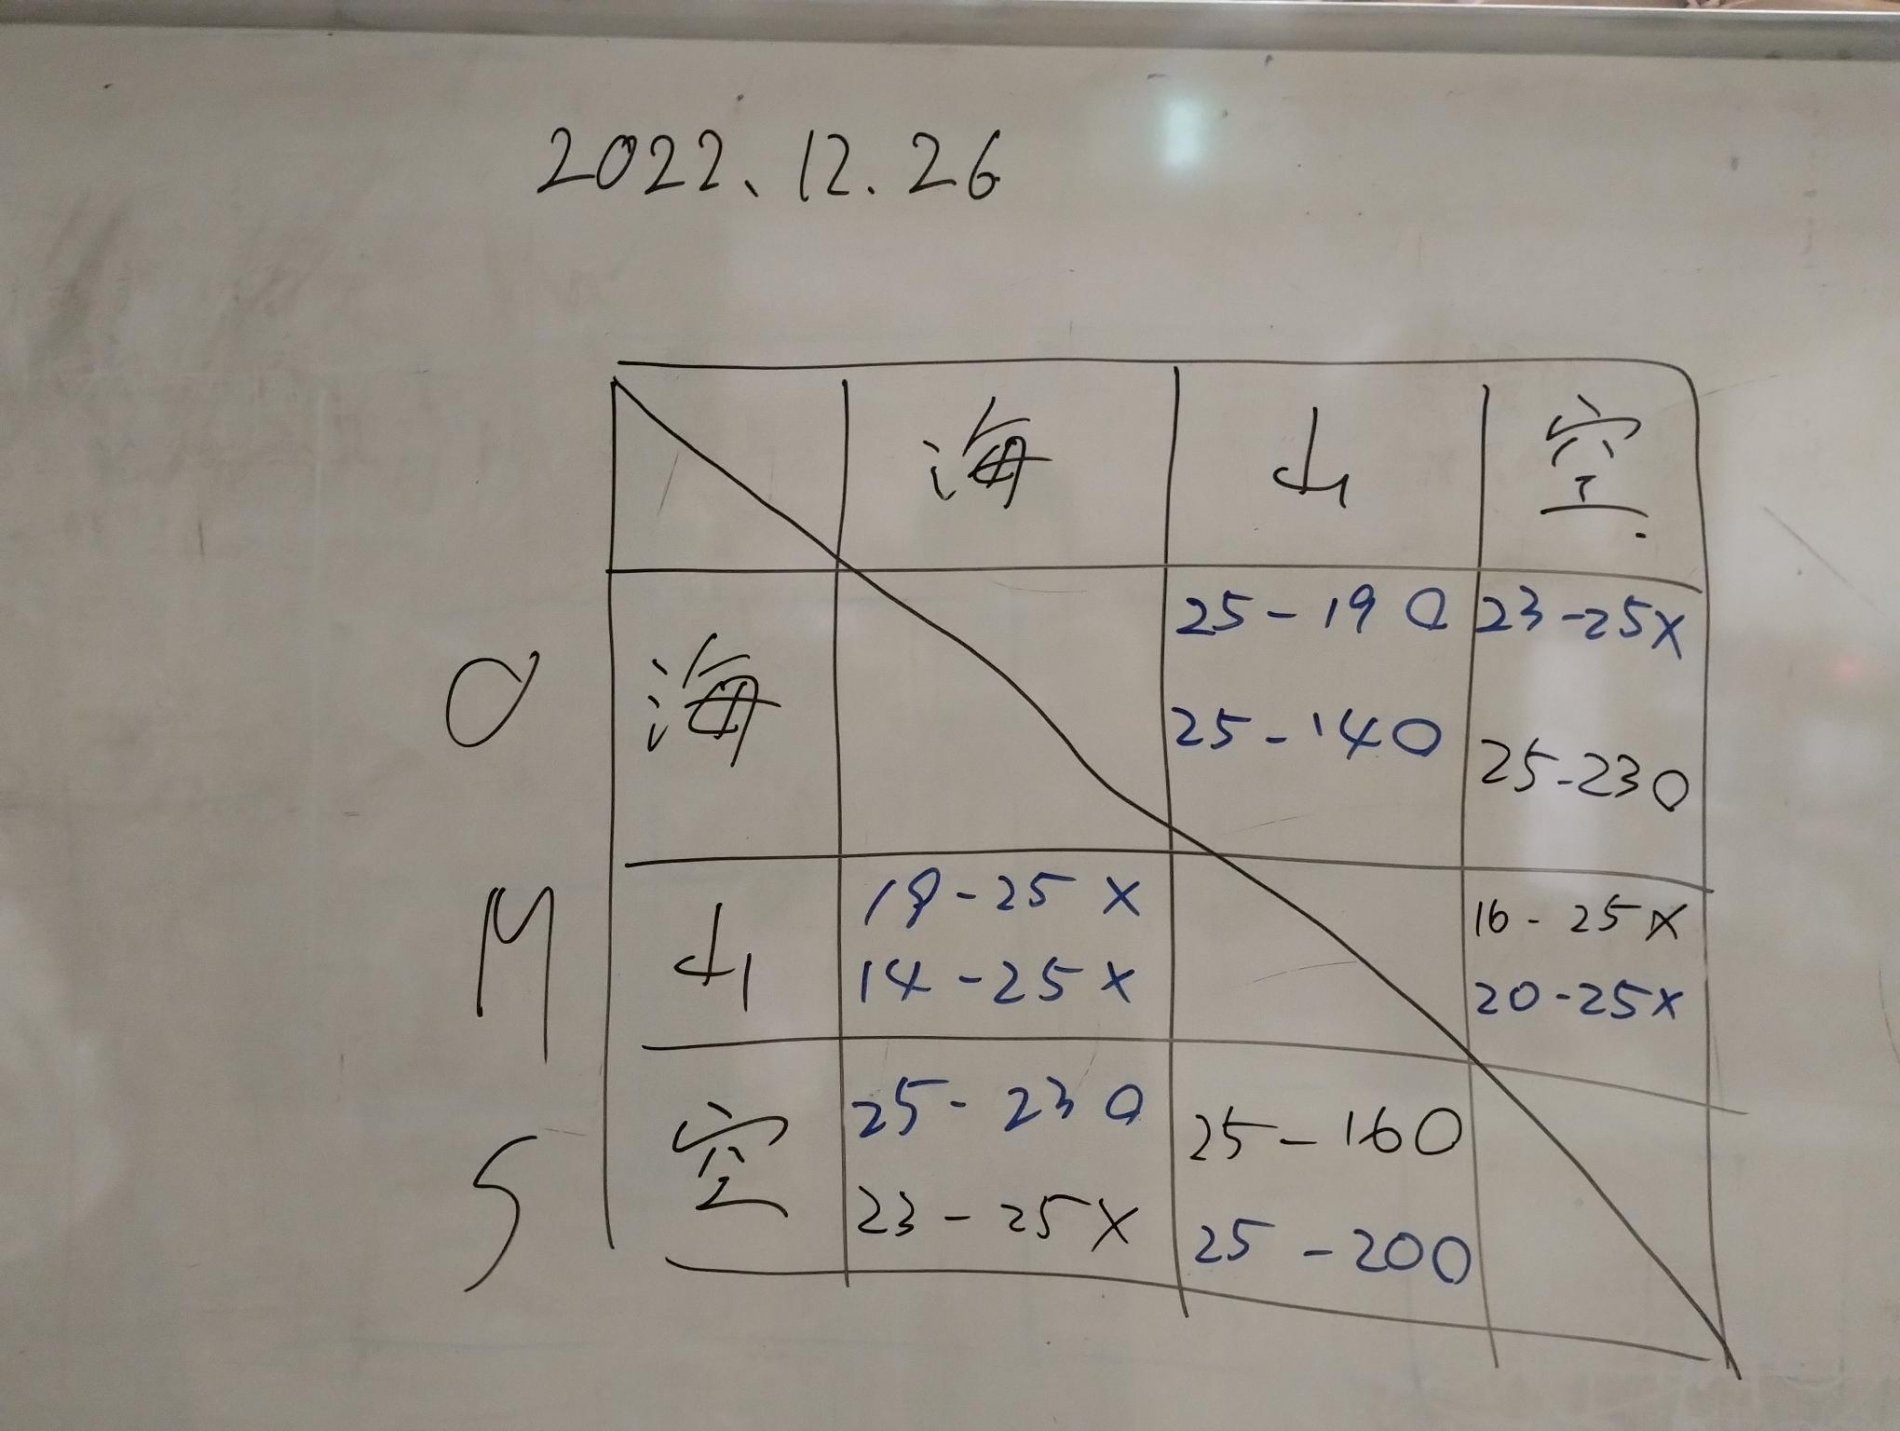 2022.12.26
海 山 空
O 海 25-19○ 23-25×
25-14○ 25-23○
M 山 19-25× 16-25×
14-25× 20-25×
S 空 25-23○ 25-16○
23-25× 25-20○